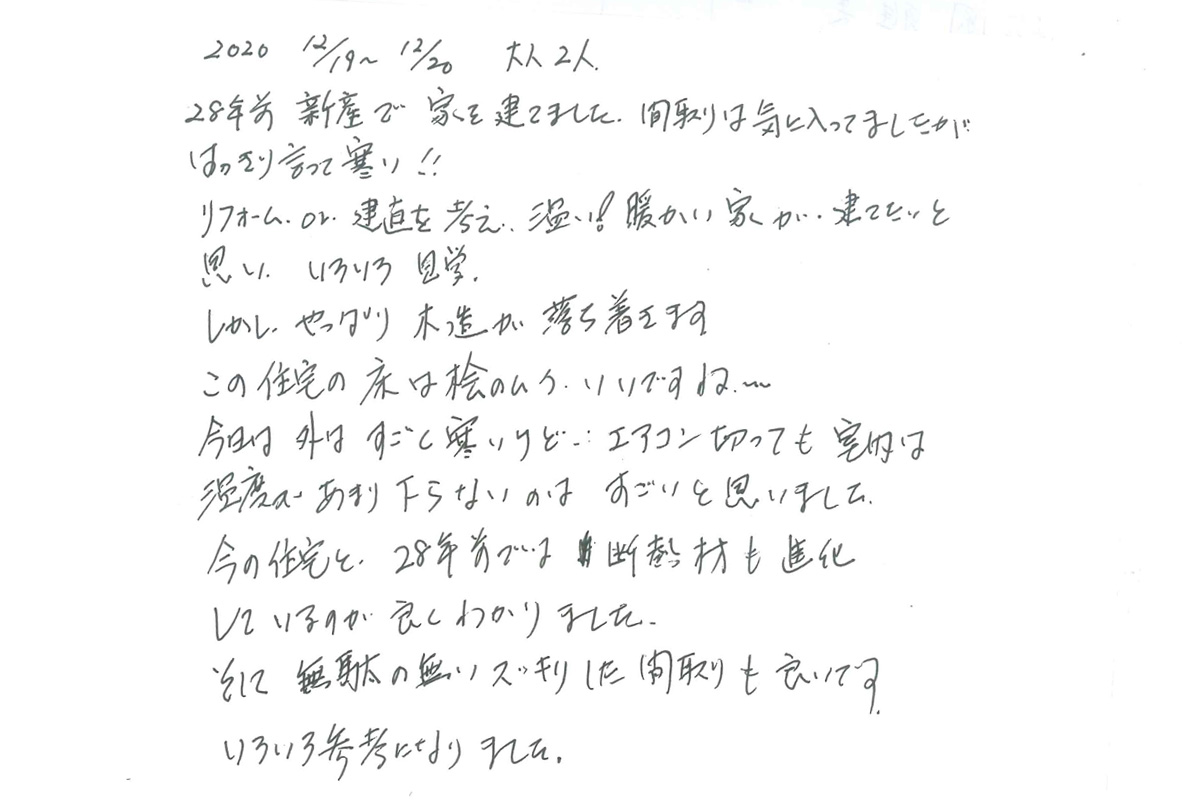 2020 12/19～12/20 大人2人.
28年前 新産で 家を建てました. 間取りは気に入ってましたが
はっきり言って寒い!!
リフォーム. or. 建直を考え. 温い! 暖かい家が. 建てたいと
思い. いろいろ見学.
しかし. やっぱり 木造が 落ち着きます
この住宅の床は桧のムク. いいですね.〜
今日は 外は すごく寒いけど… エアコン切っても 室内は
温度が あまり 下らないのは すごいと思いました.
今の住宅と. 28年前では 断熱材も進化
しているのが 良くわかりました.
そして 無駄の無いスッキリした間取りも良いです.
いろいろ参考になりました.